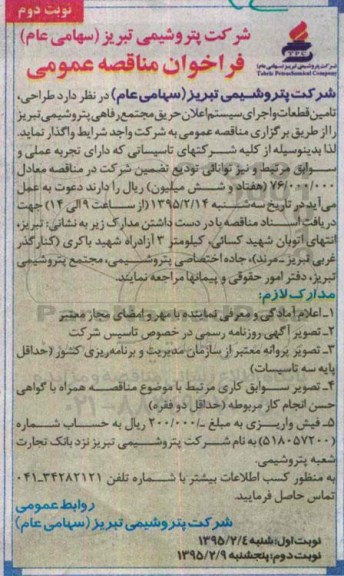 نوبت دوم
شرکت پتروشیمی تبریز (سهامی عام)
فراخوان مناقصه عمومی
شرکت پتروشیمی تبریز (سهامی عام)
Tabriz Petrochemical Company
شرکت پتروشیمی تبریز (سهامی عام) در نظر دارد طراحی،
تامین قطعات و اجرای سیستم اعلان حریق مجتمع رفاهی پتروشیمی تبریز
را از طریق برگزاری مناقصه عمومی به شرکت واجد شرایط واگذار نماید.
لذا بدینوسیله از کلیه شرکتهای تاسیساتی که دارای تجربه عملی و
سوابق مرتبط و نیز توانائی تودیع تضمین شرکت در مناقصه معادل
۷۶/۰۰۰/۰۰۰ (هفتاد و شش میلیون) ریال را دارند دعوت به عمل
می‌آید در تاریخ سه‌شنبه ۱۳۹۵/۲/۱۴ (از ساعت ۹ الی ۱۴) جهت
دریافت اسناد مناقصه با در دست داشتن مدارک زیر به نشانی: تبریز،
انتهای اتوبان شهید کسائی، کیلومتر ۳ آزادراه شهید باکری (کنارگذر
غربی تبریز ـ مرند)، جاده اختصاصی پتروشیمی، مجتمع پتروشیمی
تبریز، دفتر امور حقوقی و پیمانها مراجعه نمایند.
مدارک لازم:
۱ـ اعلام آمادگی و معرفی نماینده با مهر و امضای مجاز معتبر
۲ـ تصویر آگهی روزنامه رسمی در خصوص تاسیس شرکت
۳ـ تصویر پروانه معتبر از سازمان مدیریت و برنامه‌ریزی کشور (حداقل
پایه سه تاسیسات)
۴ـ تصویر سوابق کاری مرتبط با موضوع مناقصه همراه با گواهی
حسن انجام کار مربوطه (حداقل دو فقره)
۵ـ فیش واریزی به مبلغ ۲۰۰/۰۰۰ ریال به حساب شماره
(۵۱۸۰۵۷۲۰۰) به نام شرکت پتروشیمی تبریز نزد بانک تجارت
شعبه پتروشیمی.
به منظور کسب اطلاعات بیشتر با شماره تلفن ۳۴۲۸۲۱۲۱-۰۴۱
تماس حاصل فرمایید.
روابط عمومی
شرکت پتروشیمی تبریز (سهامی عام)
نوبت اول: شنبه ۱۳۹۵/۲/۴
نوبت دوم: پنجشنبه ۱۳۹۵/۲/۹